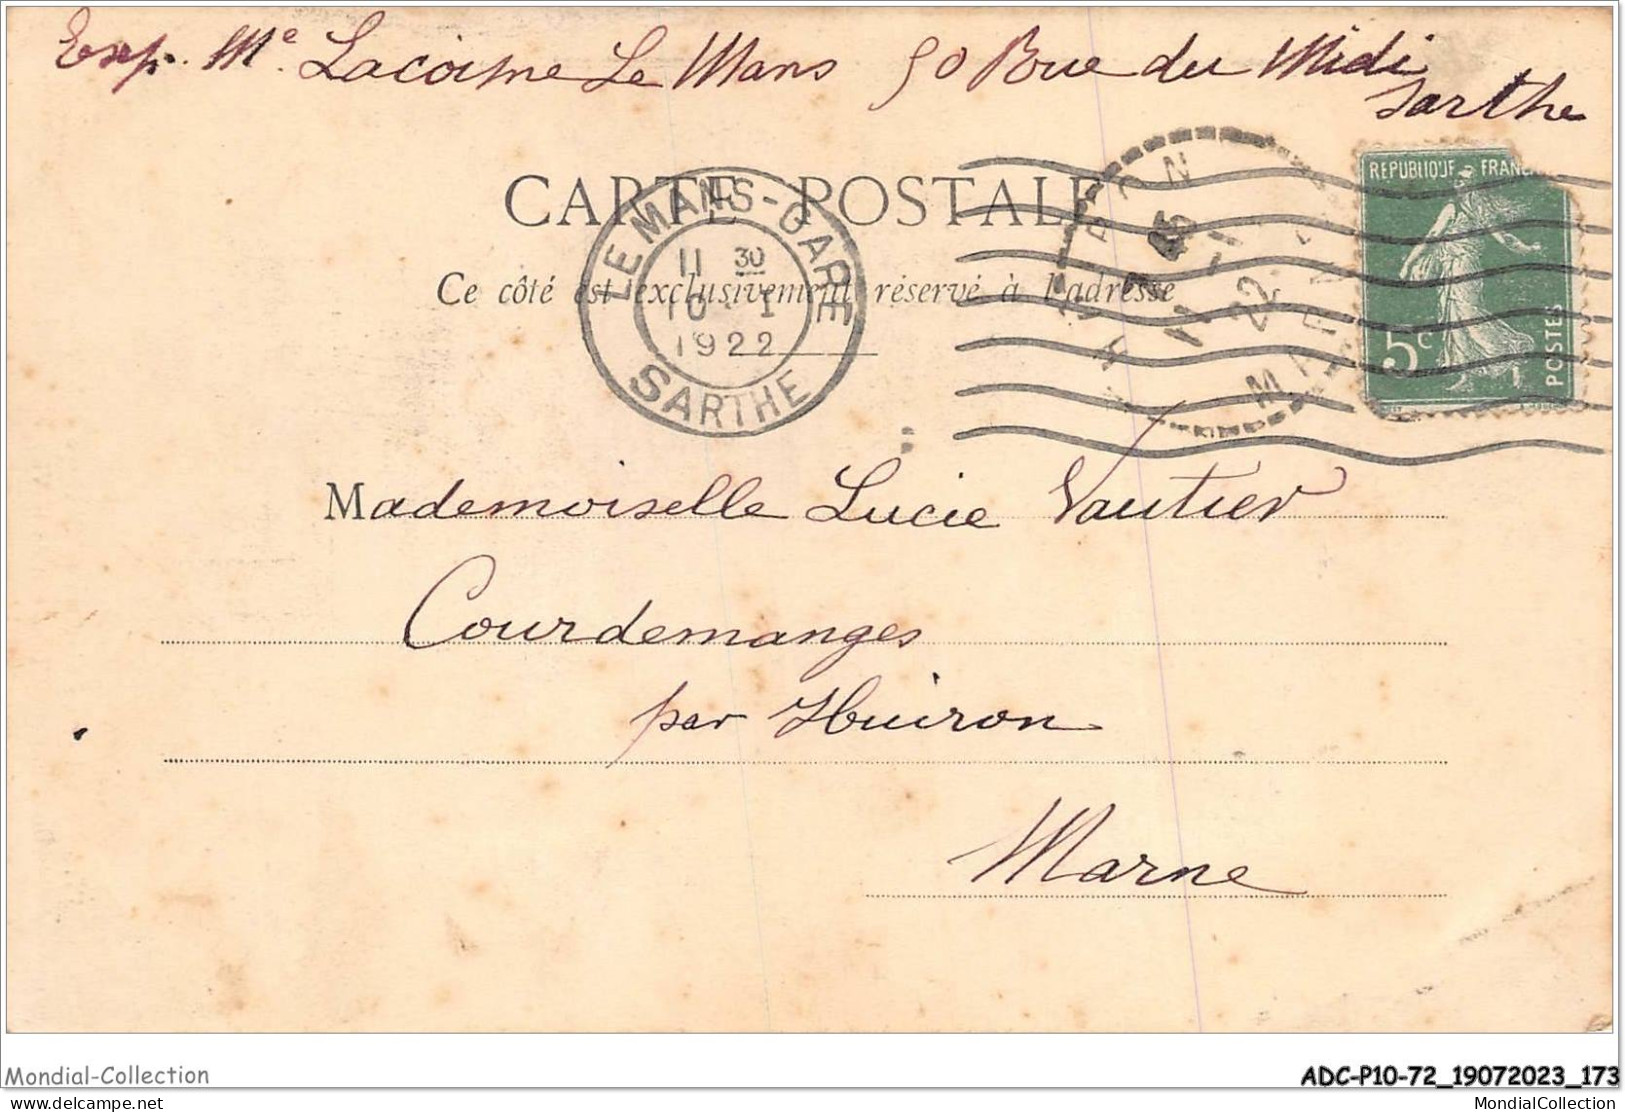 Exp. Me Lacosme Le Mans 50 Rue du Midi
Sarthe
CARTE POSTALE
Ce côté est exclusivement réservé à l'adresse
LE MANS-GARE
11 30
10 - 1
1922
SARTHE
REPUBLIQUE FRANC
5c
POSTES
Mademoiselle Lucie Vautier
Courdemanges
par Huiron
Marne
Mondial-Collection
ADC-P10-72_19072023_173
delcampe.net
MondialCollection